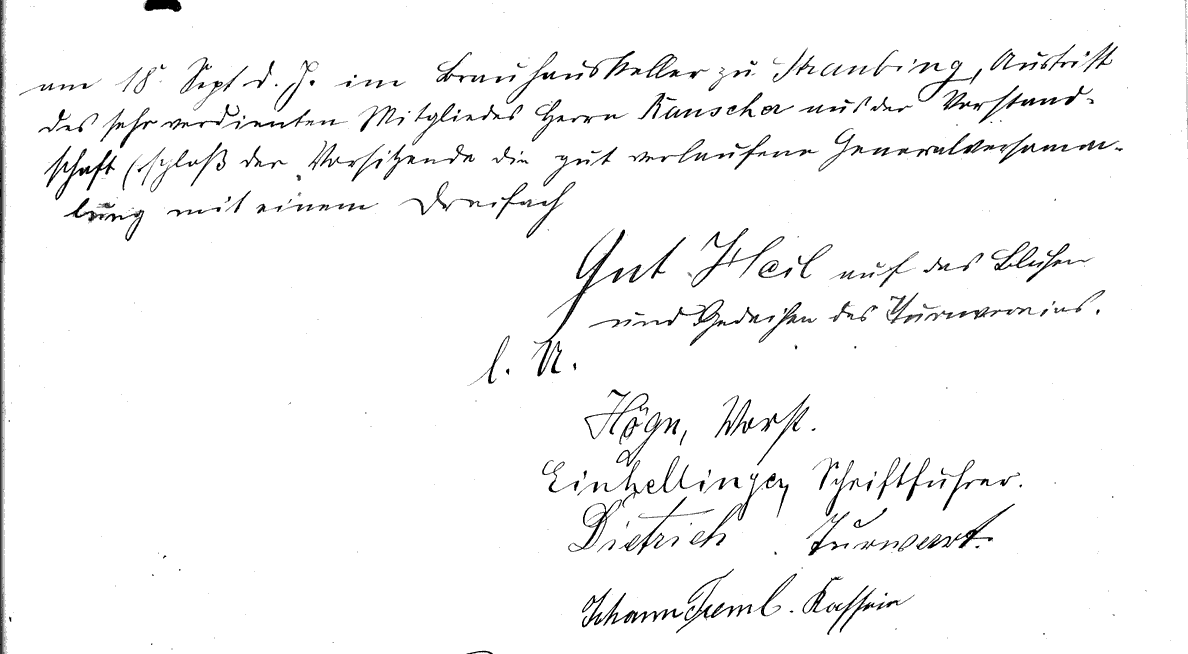 am 18. Sept d. J. im Brauhauskeller zu Straubing, Austritt
des sehr verdienten Mitgliedes Herrn Rauscher aus der Vorstand-
schaft (schloß der Vorsitzende die gut verlaufene Generalversamm-
lung mit einem Dreifach
Gut Heil auf das Blühen
und Gedeihen des Turnvereins.
l. U.
Högn, Vorst.
Schriftführer.
Dietrich Turnwart.
Johann Kassier